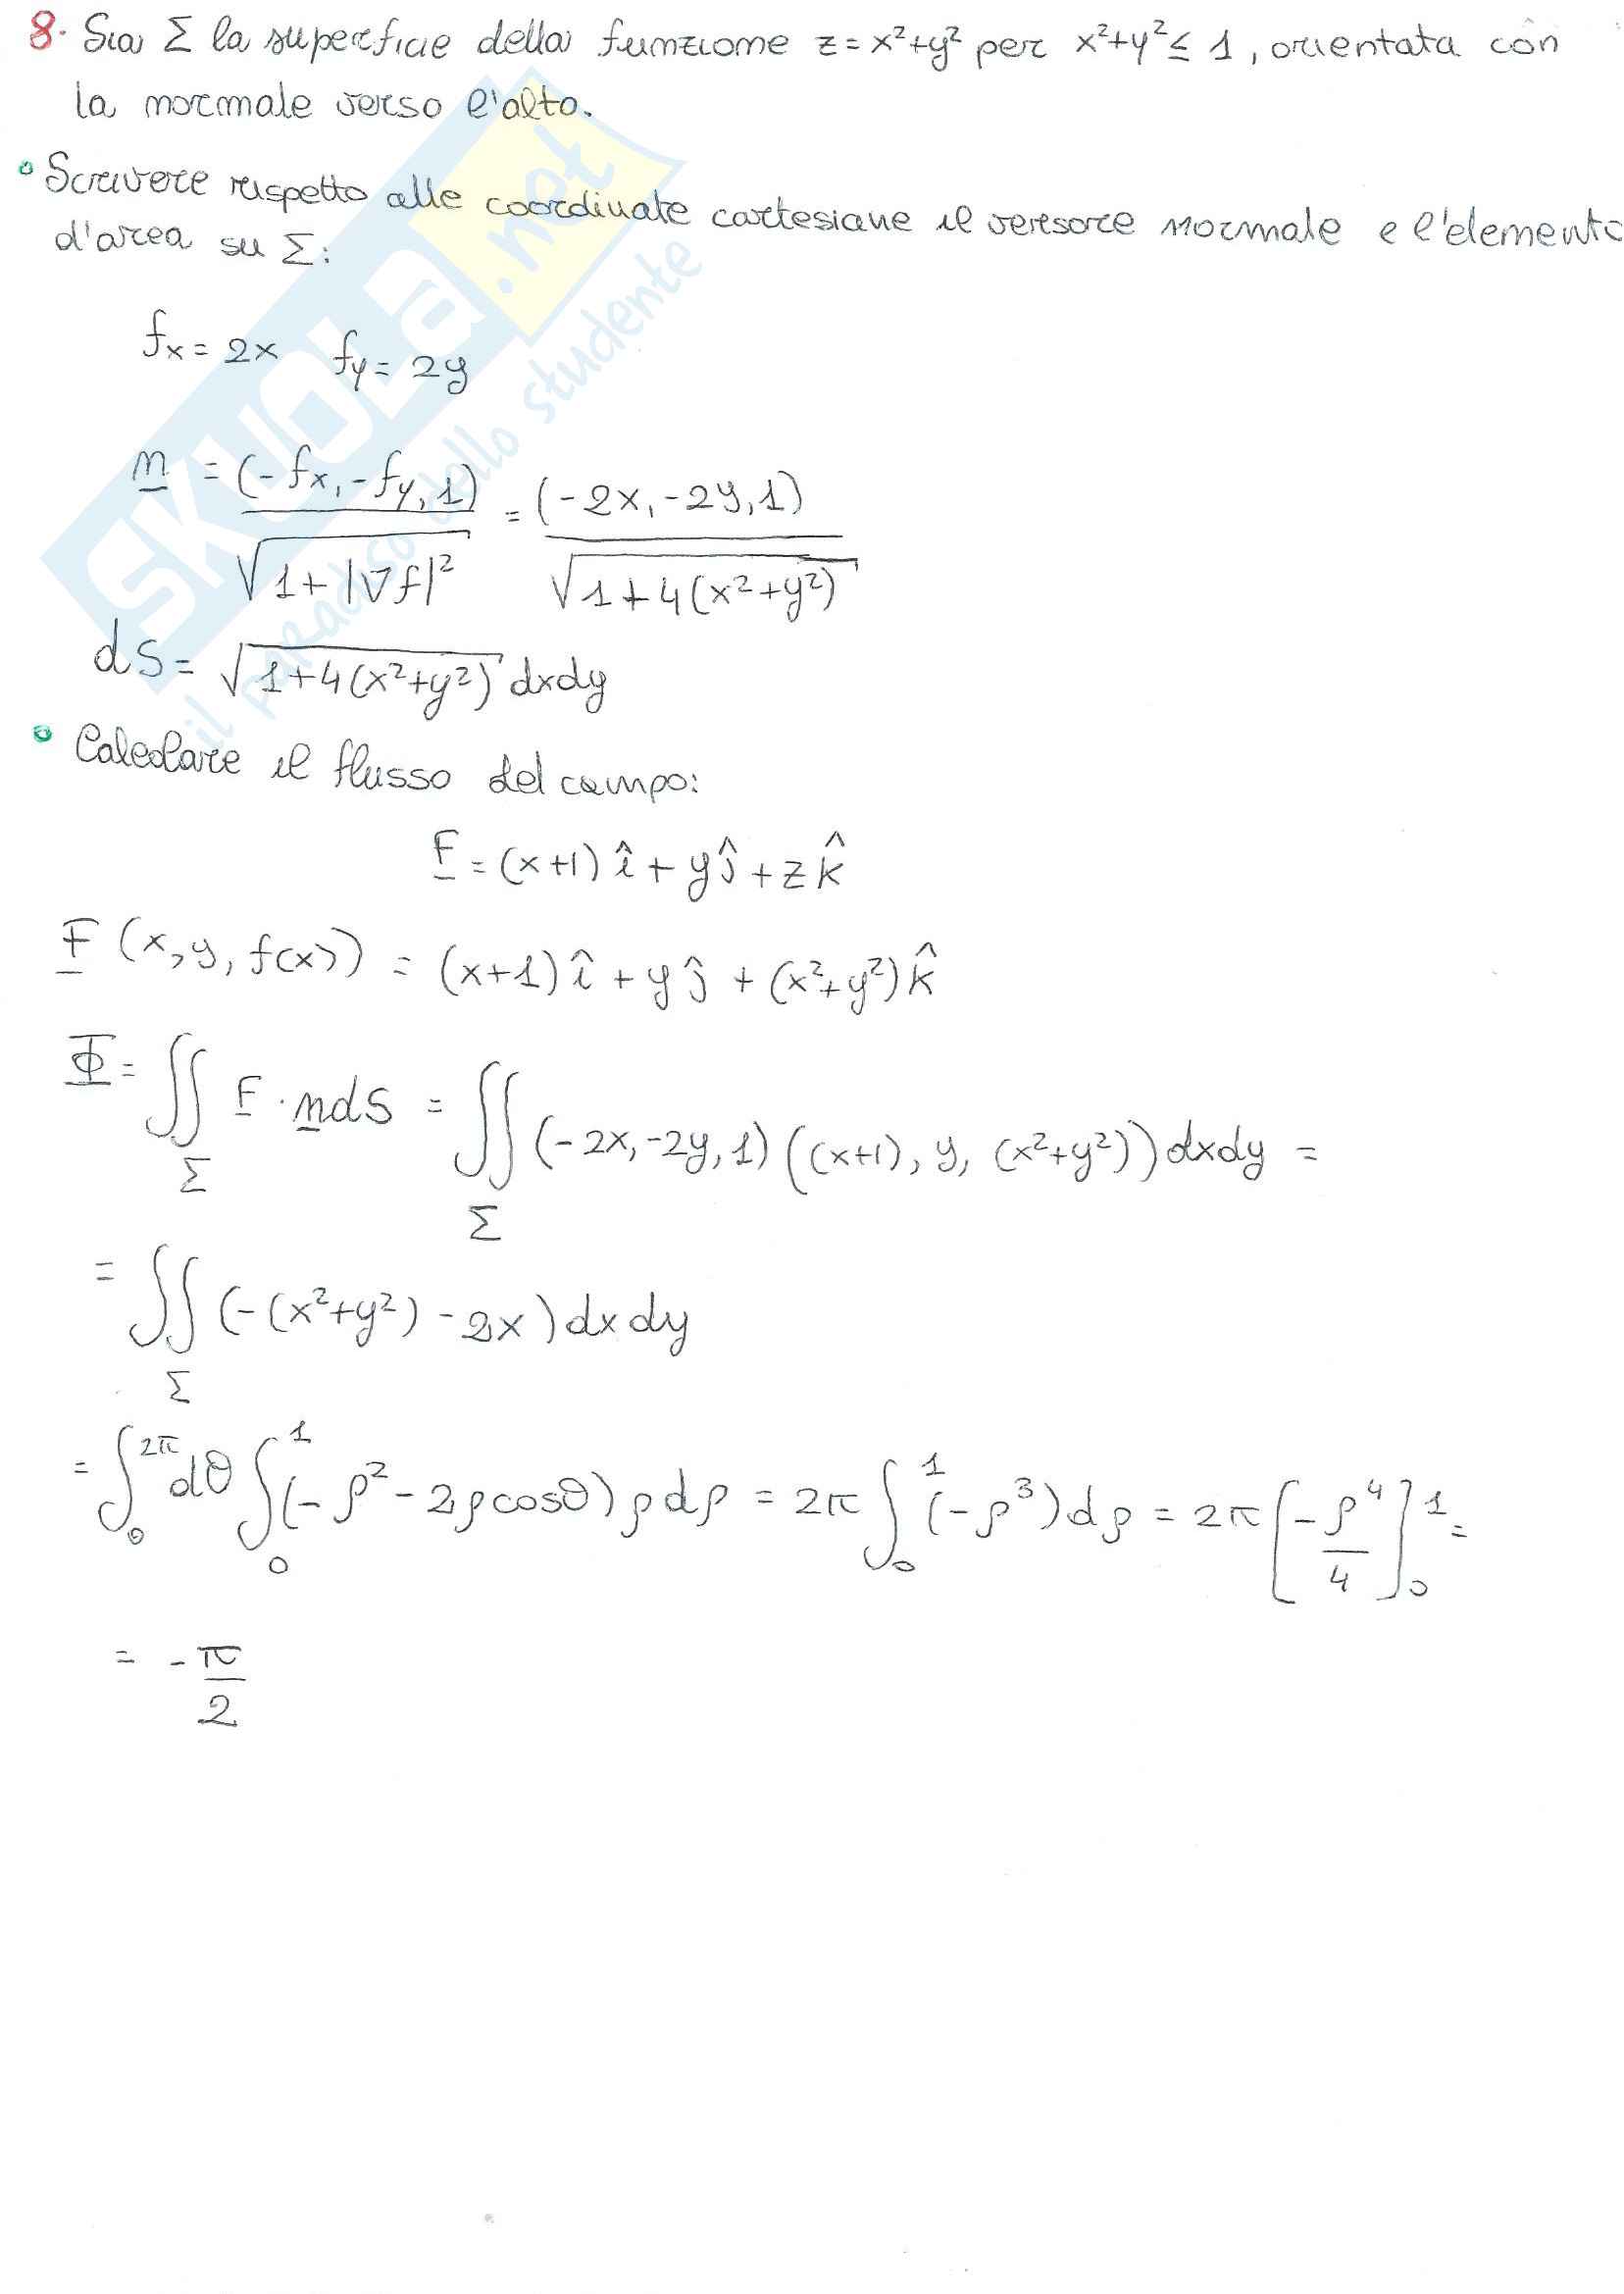 8. Sia Σ la superficie della funzione z = x²+y² per x²+y² ≤ 1, orientata con
la normale verso l'alto.
Scrivere rispetto alle coordinate cartesiane il versore normale e l'elemento
d'area su Σ:
fx = 2x   fy = 2y
n = (-fx, -fy, 1) / √(1+|∇f|²) = (-2x, -2y, 1) / √(1+4(x²+y²))
dS = √(1+4(x²+y²)) dxdy
Calcolare il flusso del campo:
F = (x+1) î + y ĵ + z k̂
F (x, y, f(x)) = (x+1) î + y ĵ + (x²+y²) k̂
Φ = ∬_Σ F · n dS = ∬_Σ (-2x, -2y, 1) ((x+1), y, (x²+y²)) dxdy =
= ∬_Σ (-(x²+y²) - 2x) dxdy
= ∫₀^2π dθ ∫₀^1 (-ρ² - 2ρcosθ) ρ dρ = 2π ∫₀^1 (-ρ³) dρ = 2π [-ρ⁴/4]₀^1 =
= -π/2
SKUOLA.net
il paradiso dello studente